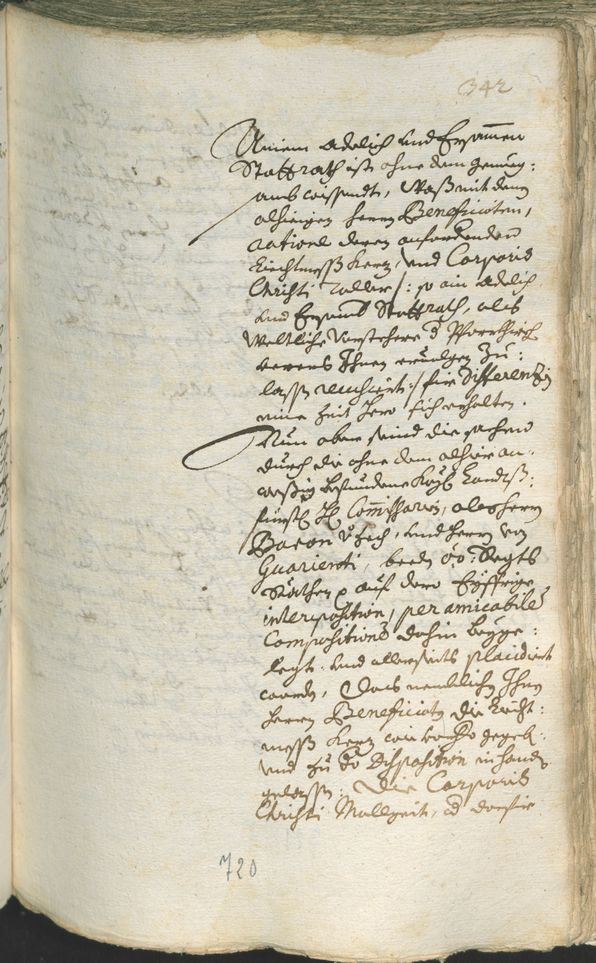 342
Einem Adelich und Ersamen
Stattrath ist ohne dem genueg:
samb wissendt, Waß mit denen
alhieigen herrn Beneficiaten,
ratione deren anfordenden
Liechtmeß Kerz, und Corporis
Christi Taller /: so ain Adelich
und Ersamb Stattrath, als
Weltliche Vorstehere d Pfarrkirch
Ihnen ervolgen zu:
lassen recusiert :/ für Differenzien
eine Zeit hero sich erhalten.
Nun aber seind die sachen
durch die ohne dem alhier an:
wesig Kayß Landtß:
fürstl H Commissarien, als herrn
Baron v Zech, und herrn von
Guarienti, beede öö: Regts
Räthen auf dero Eyffrige
interposition, per amicabilem
Compositionem dahin beyge:
legt, und allerseits placidiert
worden, Das nemblichen Ihnen
herrn Beneficiaten die Liecht:
mess Kerz wie vorhero gegeben
und zu dero Disposition in handen
gelassen: Die Corporis
Christi Mallzeit, od darfür
720